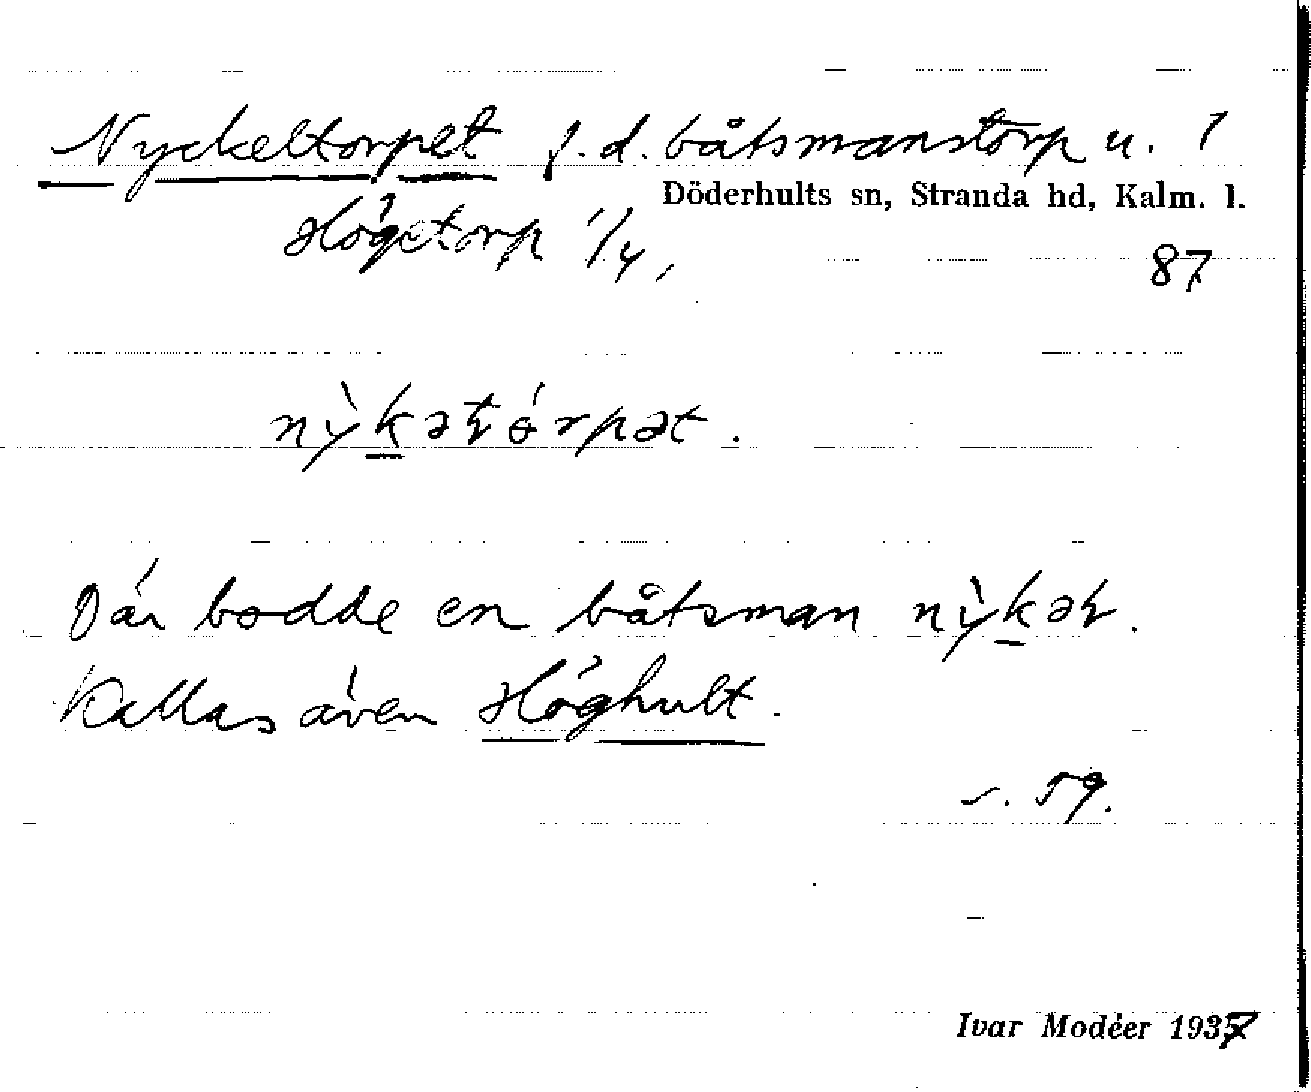 Nyckeltorpet f.d. båtsmanstorp u. 1
Döderhults sn, Stranda hd, Kalm. l.
Högetorp 1/4,
87
nỳkəltórpət.
Där bodde en båtsman nỳkəl.
Kallas även Höghult.
s. 59.
Ivar Modéer 1937